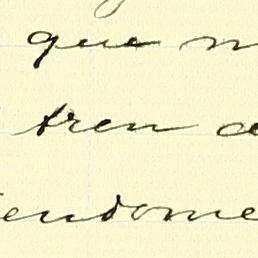 que
tren
endome